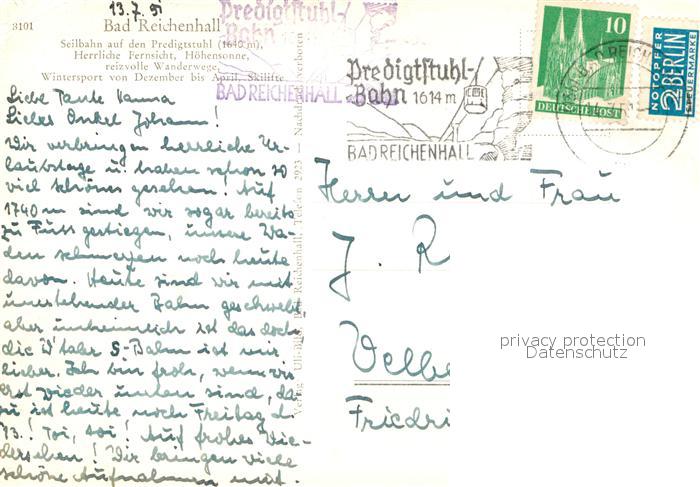 13.7.51
3101
Bad Reichenhall
Seilbahn auf den Predigtstuhl (1640 m),
Herrliche Fernsicht, Höhensonne,
reizvolle Wanderwege,
Wintersport von Dezember bis April, Skilifte
Predigtstuhl-
Bahn
BAD REICHENHALL
Predigtstuhl-
Bahn 1614 m
BAD REICHENHALL
10
DEUTSCHE POST
NOTOPFER
2 BERLIN
STEUERMARKE
Liebe Tante Hanna
Lieber Onkel Johann!
Wir verbringen herrliche Ur-
laubstage u. haben schon so
viel schönes gesehen! Auf
1740 m sind wir sogar bereits
zu Fuss gestiegen, unsere Wa-
den schmerzen noch heute
davon. Heute sind wir mit
umstehender Bahn geschwebt,
aber unheimlich ist das doch
die W'taler S-Bahn ist mir
lieber. Ich bin froh, wenn wir
erst wieder unten sind, da-
zu ist heute noch Freitag d.
13.! Toi, toi! Auf frohes Wie-
dersehen! Wir bringen viele
schöne Aufnahmen mit.
Herrn und Frau
J. R
Velbe
Friedri
privacy protection
Datenschutz